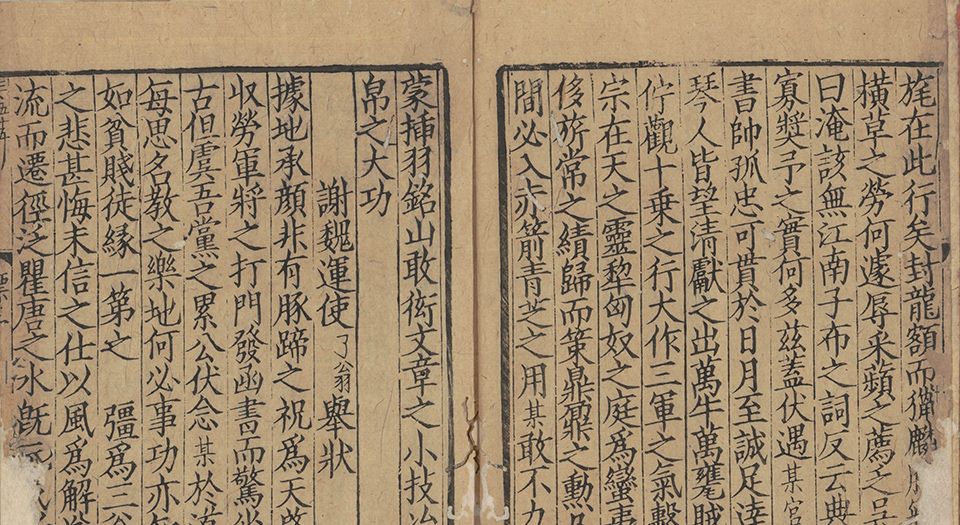 旄在此行矣封龍額而獵麟
橫草之勞何遽辱采蘋之薦
曰淹該無江南子布之詞反云典
寡獎予之實何多茲蓋伏遇某官
書帥孤忠可貫於日月至誠足達
琴人皆望清獻之出萬牛萬甕賊
佇觀十乘之行大作三軍之氣擊
宗在天之靈犂匈奴之庭為蠻夷
侈旂常之績歸而策鼎鼐之勳
間必入赤箭青芝之用某敢不
蒙揷羽銘山敢衒文章之小技
帛之大功
謝魏運使了翁舉狀
據地承顔非有豚蹄之祝為天
收勞軍將之打門發函書而驚坐
古但虞吾黨之累公伏念某於
每思名教之樂地何必事功亦
如貧賤徒緣一第之 彊為三
之悲甚悔未信之仕以風為解
流而遷徑泛瞿唐之水旣